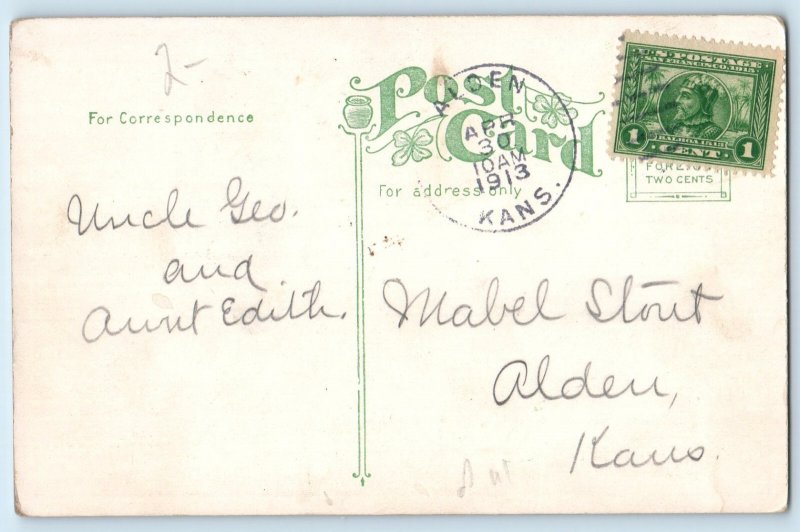 2-
For Correspondence
Post Card
For address only
ALDEN
APR
30
10AM
1913
KANS.
U.S. POSTAGE
SAN FRANCISCO, 1915
BALBOA 1513
1 CENT 1
FOREIGN
TWO CENTS
Uncle Geo.
and
Aunt Edith.
Mabel Stout
Alden,
Kans.